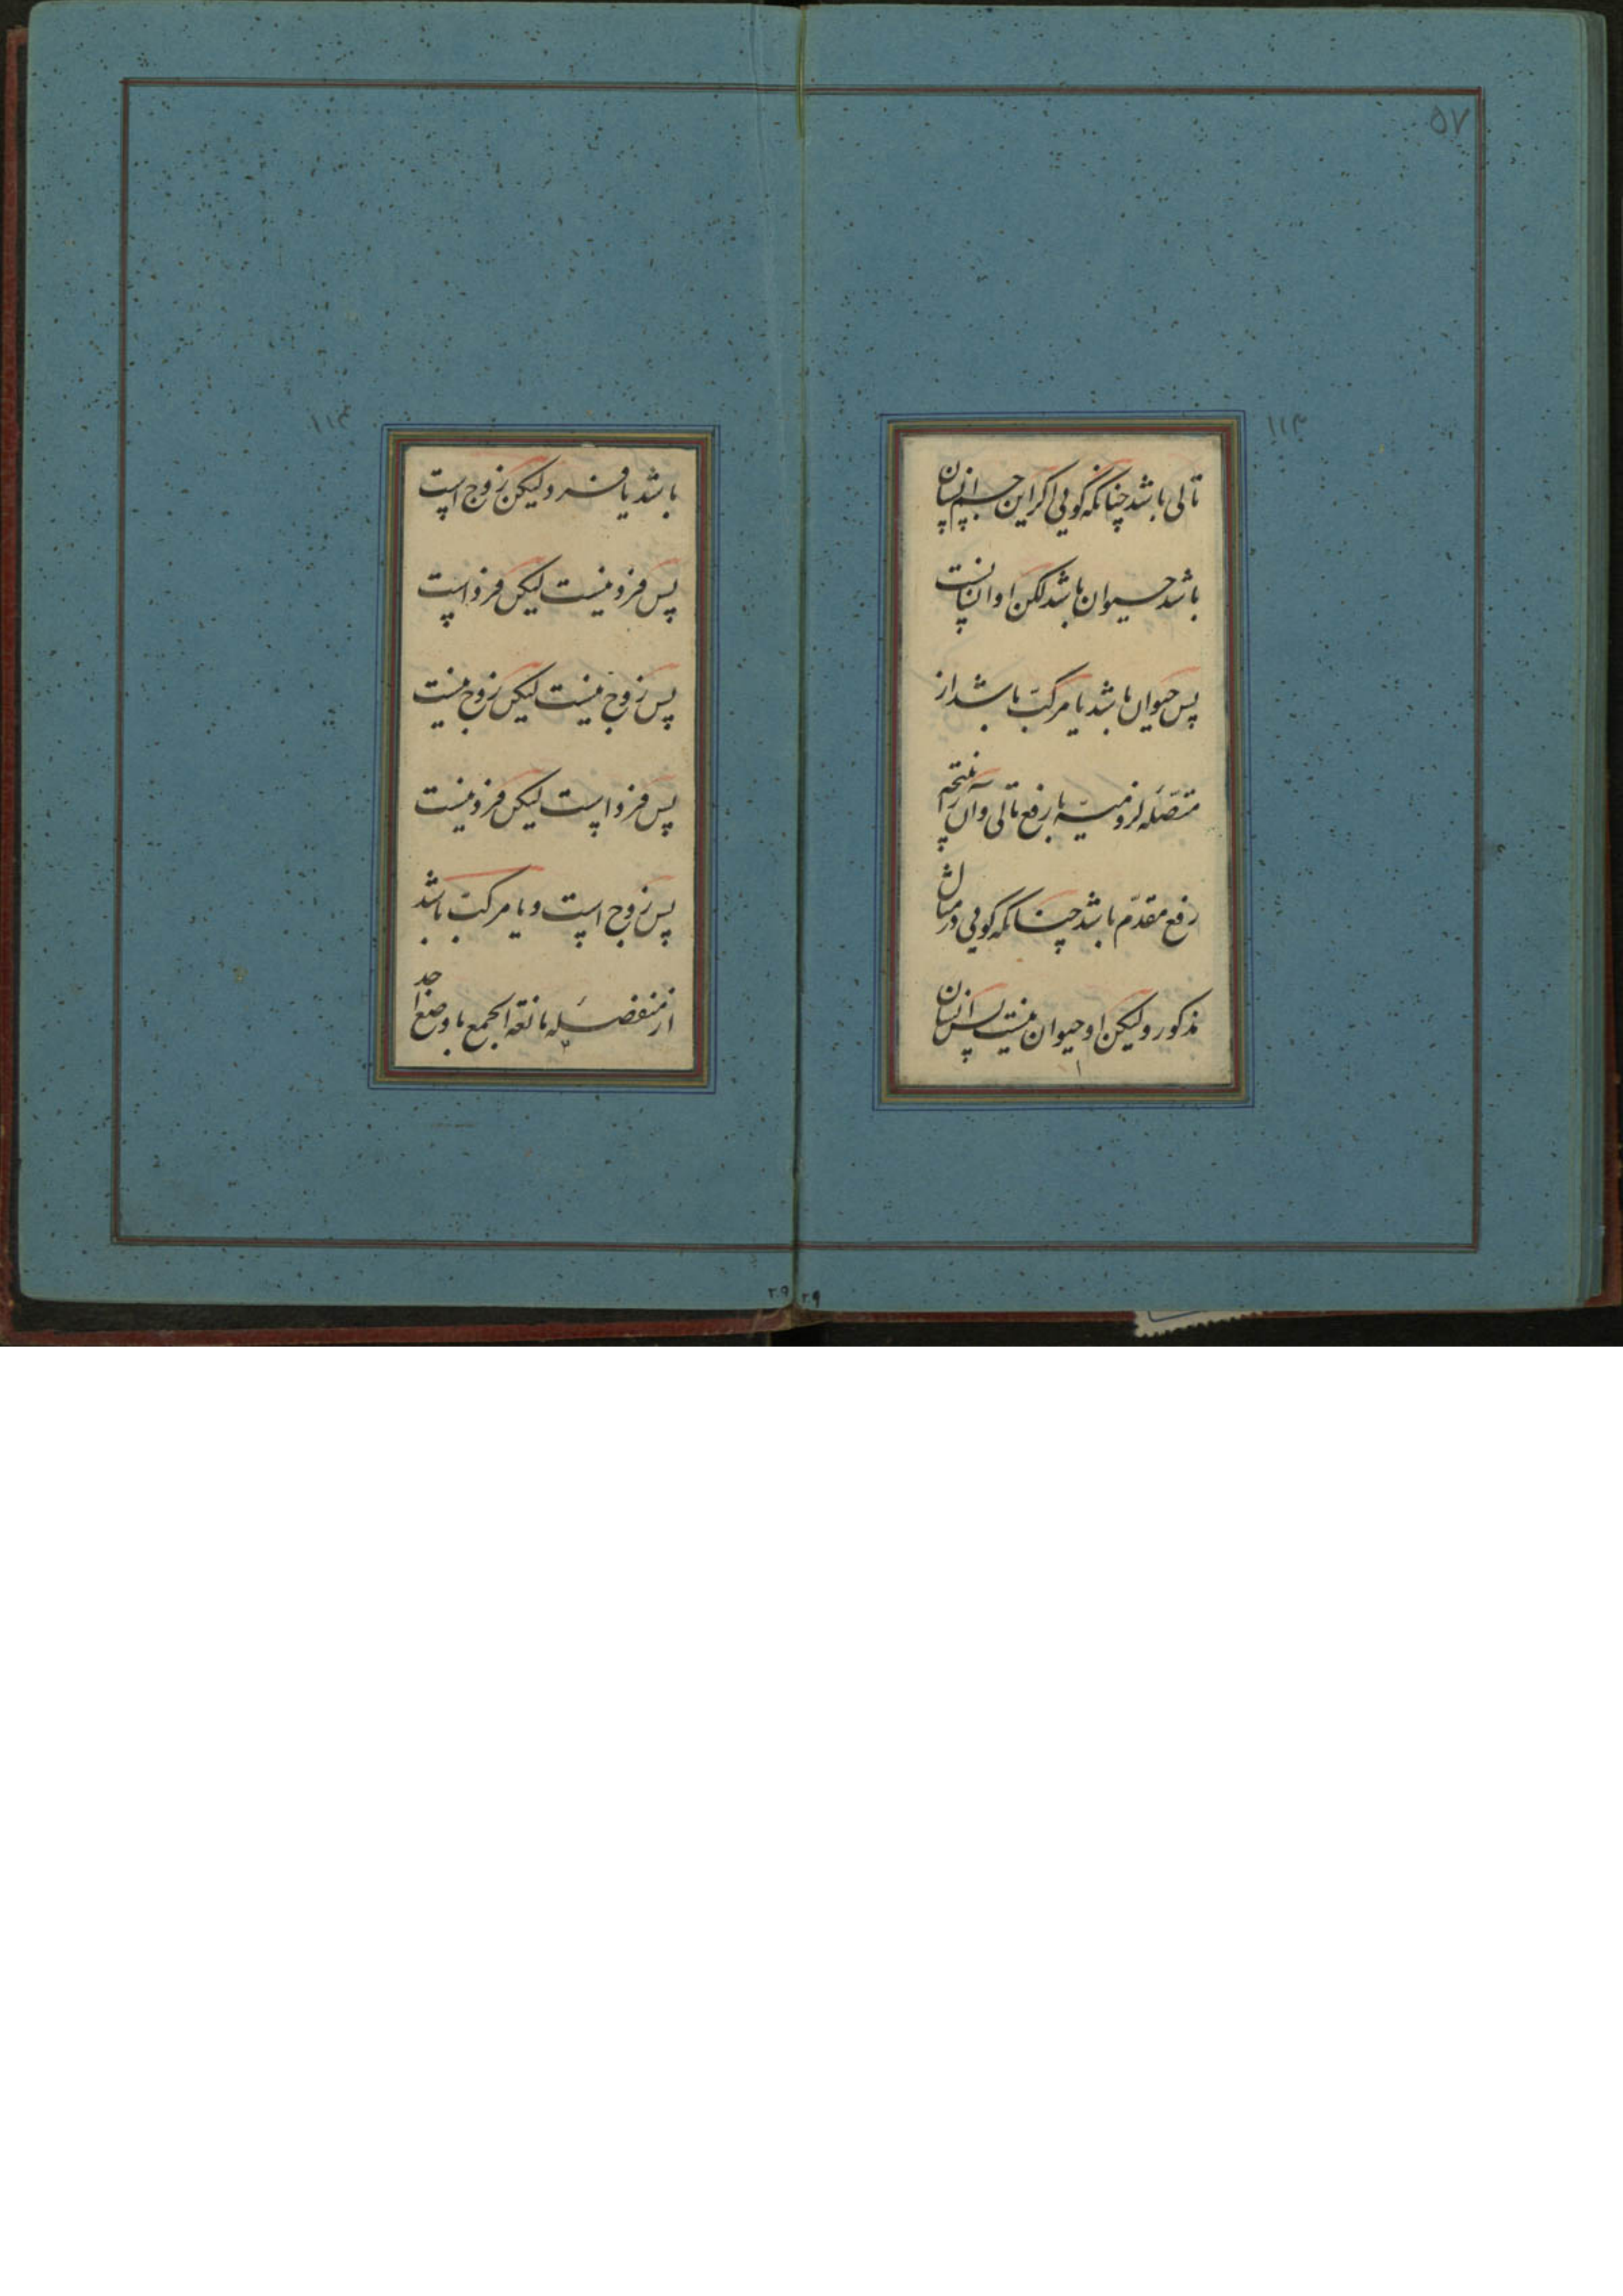 ۵۷
۱۱۳
تالی باشد چنانکه گویی اگر این جسم انسان
باشد حیوان باشد لکن او انسانست
پس حیوان باشد یا مرکب باشد از
متصلهٔ لزومیه با رفع تالی و آن را نتیجه
رفع مقدم باشد چنانکه گویی در مثال
مذکور ولیکن او حیوان نیست پس انسان
۱۱۴
باشد یا فرد ولیکن زوج است
پس فرد نیست لیکن فرد است
پس زوج نیست لیکن زوج نیست
پس فرد است لیکن فرد نیست
پس زوج است و یا مرکب باشد
از منفصلهٔ مانعة الجمع با وضع احد
۲۹ ۲۹